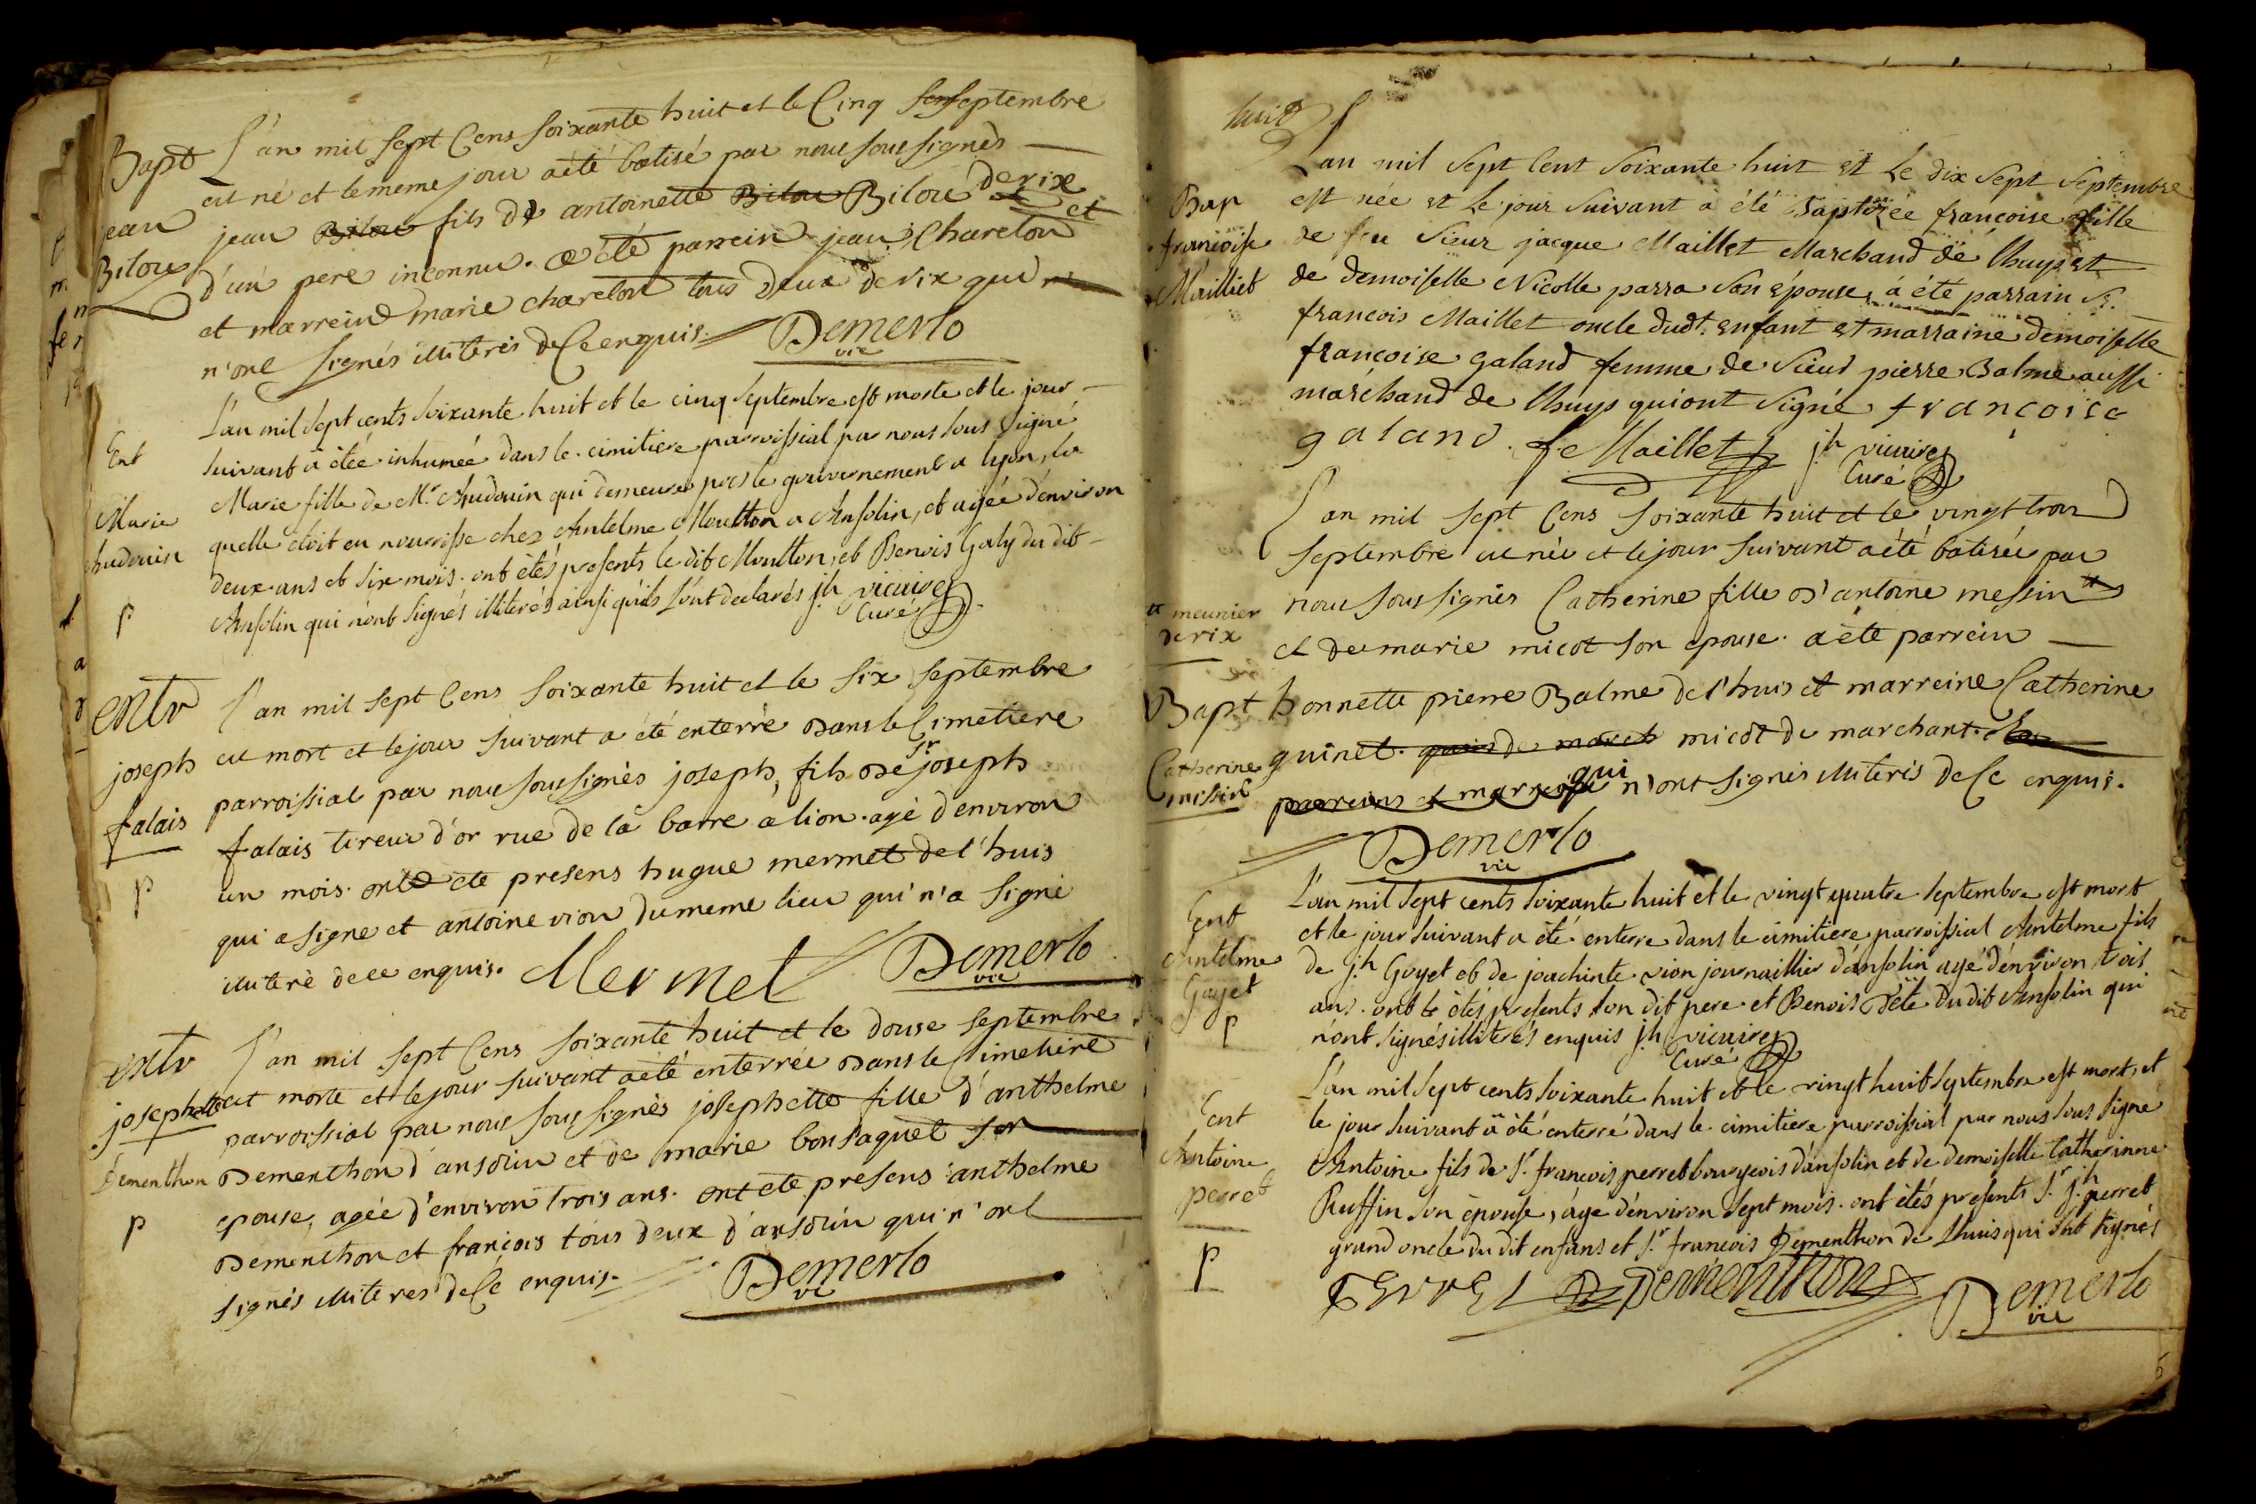 Bapt
jean
Bilou
L'an mil sept Cens soixante huit et le Cinq septembre
est né et le meme jour a été batisé par nous soussignés
jean Bilou fils de antoinette Bilou Bilou de rix et
d'un pere inconnu. a été parrein jean Charelon
et marreine marie charelon tous deux de rix qui
n'ont signés illiterés de Ce enquis. Demerlo
vic
Ent
Marie
Audouin
p
L'an mil sept cents soixante huit et le cinq septembre est morte et le jour
suivant a étée inhumée dans le cimitiere parroissial par nous sous signé
Marie fille de Mr. Audouin qui demeure près le gouvernement a lyon, la
quelle étoit en nourrisse chez Antelme Moutton a Ansolin, et agée d'environ
deux ans et six mois. ont étés presents le dit Moutton, et Benois Galy du dit
Ansolin qui n'ont signés illiterés ainsi qu'ils l'ont declarés jh vicaire
Curé
entr
joseph
falais
p
l'an mil sept Cens soixante huit et le six septembre
est mort et le jour suivant a été enterré dans le Cimetiere
parroissial par nous soussignés joseph, fils de sr joseph
falais tireur d'or rue de la barre a lion. agé d'environ
un mois. ont été presens hugue mermet de l'huis
qui a signé et antoine vion du meme lieu qui n'a signé
illiteré de ce enquis. Mermet Demerlo
vic
entr
josephette
Dementhon
p
l'an mil sept Cens soixante huit et le douse septembre
est morte et le jour suivant a été enterrée dans le Cimetiere
parroissial par nous sous signés josephette fille d'anthelme
Dementhon d'ansolin et de marie bonsaquet son
epouse, agée d'environ trois ans. ont été presens anthelme
Dementhon et françois tous deux d'ansolin qui n'ont
signés illiteres de Ce enquis. Demerlo
vic
huit
Bap
francoise
Mailliet
L'an mil sept Cent soixante huit et le dix sept septembre
est née et le jour suivant a été Baptizée françoise fille
de feu sieur jacque Maillet Marchand de lhuys et
de demoiselle Nicolle parra son épouse, a été parrain Sr.
françois Maillet oncle dudt. enfant et marraine demoiselle
françoise galand femme de sieur pierre Balme aussi
marchand de lhuys qui ont signé françoise
galand. f Maillet jh vicaire
Curé
L'an mil sept Cens soixante huit et le vingt trois
septembre est née et le jour suivant a été batisée par
nous sous signés Catherine fille d'antoine messin
meunier
de rix
et de marie micot son epouse. a été parrein
Bapt
Catherine
missin
honnette pierre Balme de l'huis et marreine Catherine
guinet. micot de marchant.
parreins et marreine qui n'ont signés illiterés de Ce enquis.
Demerlo
vic
Ent
Antelme
Goyet
p
L'an mil sept cents soixante huit et le vingt quatre septembre est mort
et le jour suivant a été enterre dans le cimitiere parroissial Antelme fils
de jh Goyet et de joachinte vion journaillier d'ansolin agé d'environ trois
ans. ont étés presents son dit pere et Benois Telé du dit Ansolin qui
n'ont signés illiterés enquis jh vicaire
Curé
Ent
Antoine
perret
p
L'an mil sept cents soixante huit et le vingt huit septembre est mort, et
le jour suivant a été enterré dans le cimitiere parroissial par nous sous signé
Antoine fils de Sr. françois perret bourgeois d'ansolin et de demoiselle Catherinne
Ruffin son épouse, agé d'environ sept mois. ont étés presents Sr. jh perret
grand oncle du dit enfans et Sr. francois Dementhon de Lhuis qui ont signés
PERREL Dementhon Demerlo
vic